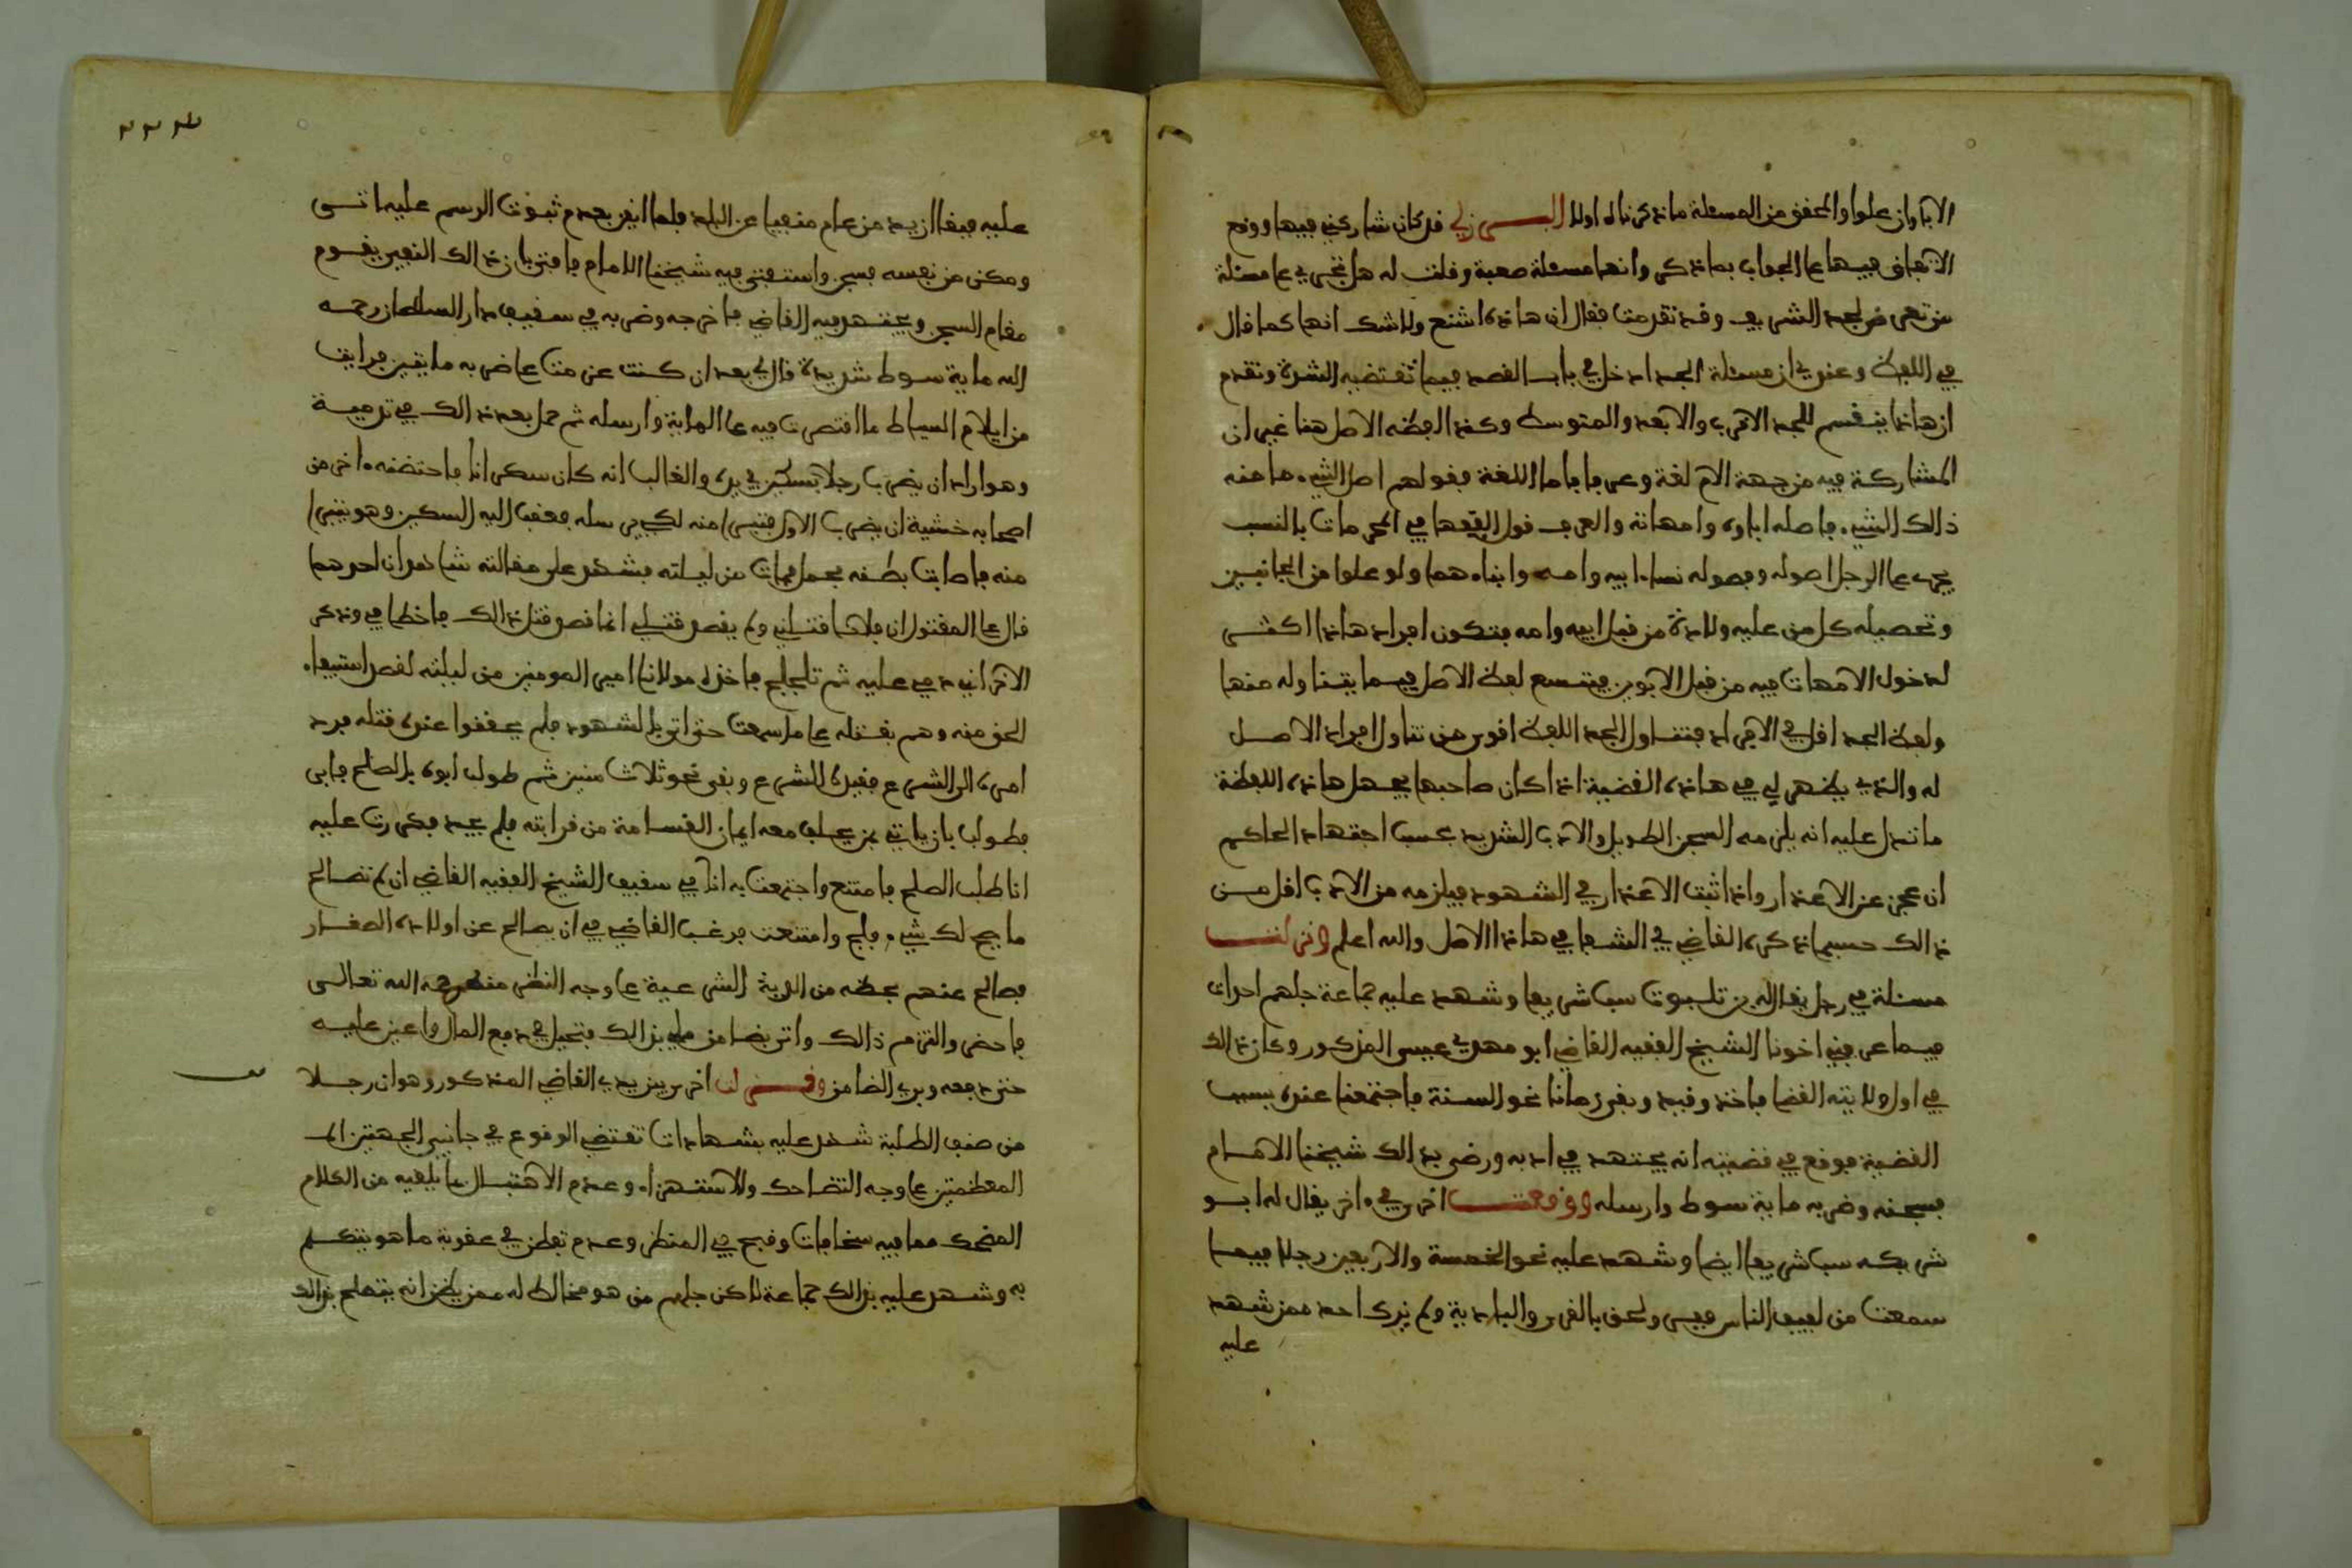 الآباء وإن علوا والمحقق من المسئلة ما ذكرناه أولا البـــرزلي قد كان شاركني فيها ووقع
الاتفاق فيها على الجواب بما ذكر وأنها مسئلة صعبة وقلت له هل تجري على مسئلة
من تعرض لجد الشريف وقد تقدمت فقال إن هاذه أشنع ولا شك أنها كما قال
في اللفظ وعندي أن مسئلة الجد ادخل في باب القصد فيما تقتضيه الشدة وتقدم
أن هاذا ينقسم للجد الأقرب والأبعد والمتوسط وكذا لفظه الأصل هنا غير أن
المشاركة فيه من جهة الأم لغة وعرفا فأما اللغة فقولهم أصل الشيء ما منه
ذالك الشيء فأصله آباؤه وأمهاته والعرف قول الفقهاء في المحرمات بالنسب
يحرم على الرجل أصوله وفصوله نساء أبيه وأمه وأبناءهما ولو علوا من الجانبين
وتحصيله كل من عليه ولادة من قبل أبيه وأمه فتكون أفراد هاذا أكثر
لدخول الأمهات فيه من قبل الأبوين فيتسع لفظ الأصل فيما يتناوله منها
ولفظ الجد أقل في الأفراد فتناول الجد اللفظ أقوى من تناول أفراد الأصل
له والذي يظهر لي في هاذه القضية إذا كان صاحبها يجهل هاذه اللفظة
ما تدل عليه أنه يلزمه السجن الطويل والأدب الشديد بحسب اجتهاد الحاكم
إن عجز عن الأعذار وإذا ثبت الأعذار في الشهود فيلزمه من الأدب أقل من
ذالك حسبما ذكره القاضي في الشفا في هاذا الأصل والله أعلم ونزلت
مسئلة في رجل يقال له بن تلبوت سب شريفا وشهد عليه جماعة جلهم أحداث
فيما عرفني أخونا الشيخ الفقيه القاضي أبو مهدي عيسى المذكور وكان ذالك
في أول ولايته القضا فأخذ وقيد وبقي زمانا نحو السنة فاجتمعنا عنده بسبب
القضية فوقع في قضيته أنه يجتهد في أدبه ورضي بذالك شيخنا الإمام
فسجنه وضربه ماية سوط وأرسله ووقعت أخرى في آخر يقال له أبو
شريكه سب شريفا أيضا وشهد عليه نحو الخمسة والأربعين رجلا فيما
سمعت من لفيف الناس فيسر ولحق بالقرى والبادية ولم يزك أحد ممن شهد
عليه
٢٢٤
عليه فبقا أزيد من عام متغيبا عن البلد فلما أيقن بعدم ثبوت الرسم عليه أتى
ومكن من نفسه فسجن واستفتى فيه شيخنا الإمام فأفتى بأن ذالك التغيب يقوم
مقام السجن ويجتهد فيه القاضي فأخرجه وضربه في سقيف دار السلطان رحمه
الله ماية سوط شديدة قال لي بعد إن كنت عزمت على ضربه مايتين فرايت
من إيلام السياط ما اقتصرت فيه على الماية وأرسله ثم حمل بعد ذالك في ترمية
وهو أراد أن يضرب رجلا بسكين في يده والغالب أنه كان سكرانا فاحتضنه آخر من
أصحابه خشية أن يضرب الأول فتبرأ منه لكي يرسله فعقب إليه السكين وهو يتبرأ
منه فأصابت بطنه فحمل فمات من ليلته فشهد على مقالته شاهدان أحدهما
قال على المقتول إن فلانا قتلني ولم يقصد قتلي إنما قصد قتل ذالك فأخطأ في وذكر
الآخر أنه دمى عليه ثم تلجلج فأخذه مولانا أمير المومنين من ليلته لقصد استيفاء
الحق منه وهم بقتله على ما سمعت حتى أتى بالشهود فلم يحققوا عنده قتله فرد
أمره إلى الشرع فقيده للشرع وبقي نحو ثلاث سنين ثم طولب أبوه بالصلح فأبى
فطولب بأن ياتي بمن يحلف معه أيمان القسامة من قرابته فلم يجد فكررت عليه
أنا طلب الصلح فامتنع واجتمعت به أنا في سقيف الشيخ الفقيه القاضي إن لم تصالح
ما يصح لك شيء فلج وامتنعت فرغب القاضي في أن يصالح عن أولاده الصغار
فصالح عنهم بحظه من الدية الشرعية على وجه النظر منه رحمه الله تعالى
فأحضر والتزم ذالك وأتى بضامن ملي بذالك فتحيل في دفع المال وأعين عليه
حتى دفعه وبري الضامن وقـــضى لنا أخرى بين يدي القاضي المذكور وهو أن رجلا
من صنف الطلبة شهد عليه بشهادات تقتضي الوقوع في جانبي الجهتين
المعظمتين على وجه التضاحك والاستهزاء وعدم الاهتبال بما يلقيه من الكلام
المضحك مما فيه سخافات وقبح في المنظر وعدم تفطن في عقوبة ما هو يتكلم
به وشهد عليه بذالك جماعة لاكن جلهم من هو مخالط له ممن يظن أنه يتعلم بذالك